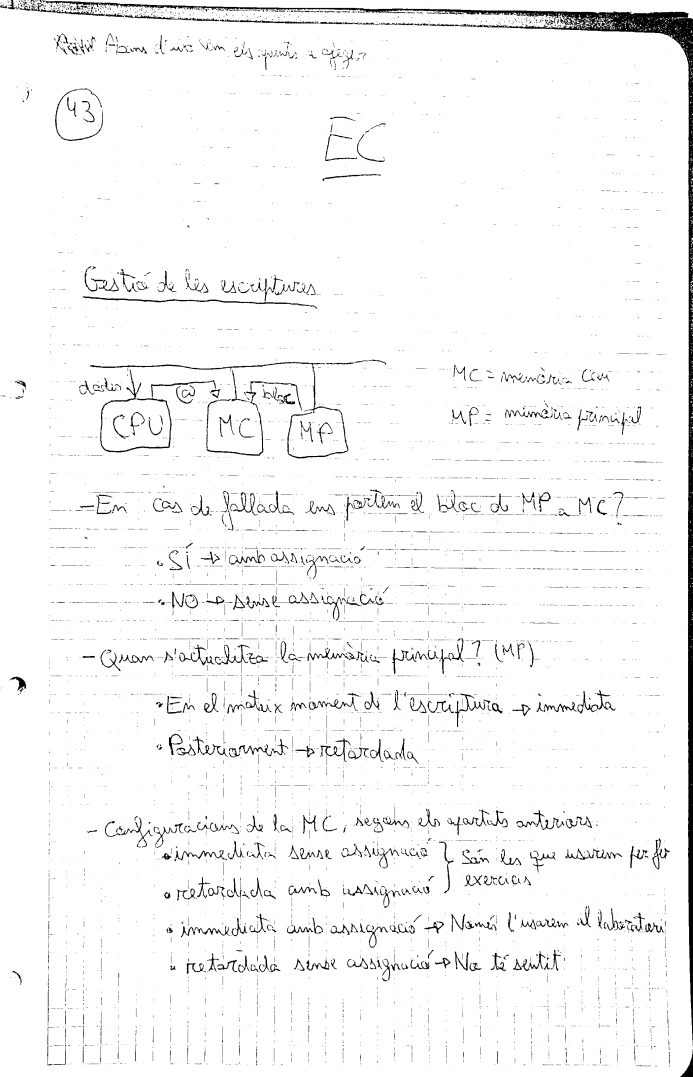 Abans d'
43
EC
Gestió de les escriptures
dades
@
bloc
CPU
MC
MP
MC = memòria Cau
MP = memòria principal
- En cas de fallada ens portem el bloc de MP a MC?
• SÍ → amb assignació
• NO → sense assignació
- Quan s'actualitza la memòria principal? (MP)
• En el mateix moment de l'escriptura → immediata
• Posteriorment → retardada
- Configuracions de la MC, segons els apartats anteriors.
• immediata sense assignació } Són les que usarem per fer
• retardada amb assignació } exercicis
• immediata amb assignació → Només l'usarem al laboratori
• retardada sense assignació → No té sentit